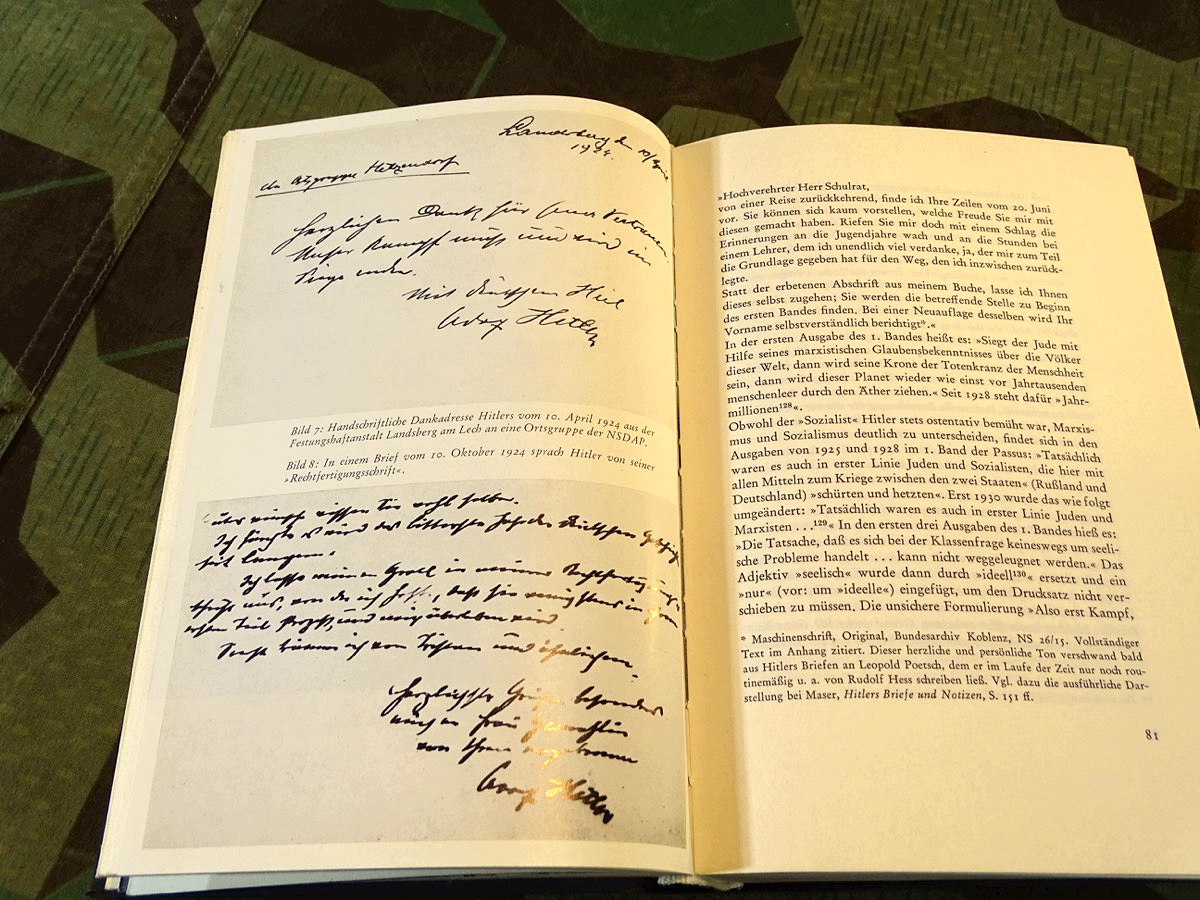 Landsberg den 10/April
1924.
An Ortsgruppe Hetzendorf
Herzlichen Dank für Euer Vertrauen.
Unser Kampf muss und wird im
Siege enden.
Mit deutschem Heil
Adolf Hitler
Bild 7: Handschriftliche Dankadresse Hitlers vom 10. April 1924 aus der
Festungshaftanstalt Landsberg am Lech an eine Ortsgruppe der NSDAP.
Bild 8: In einem Brief vom 10. Oktober 1924 sprach Hitler von seiner
»Rechtfertigungsschrift«.
wissen Sie wohl selber.
Ich fürchte es wird das bitterste der deutschen
seit langem.
Ich lasse meinen Groll in meiner
aus, von der ich hoffe, dass sie wenigstens in
ersten Teil Prozess und mich überleben wird.
Sonst träume ich von Tristan und ähnlichem.
Herzlichste Grüsse besonders
auch an Frau Gemahlin
von Ihrem ergebenen
Adolf Hitler
»Hochverehrter Herr Schulrat,
von einer Reise zurückkehrend, finde ich Ihre Zeilen vom 20. Juni
vor. Sie können sich kaum vorstellen, welche Freude Sie mir mit
diesen gemacht haben. Riefen Sie mir doch mit einem Schlag die
Erinnerungen an die Jugendjahre wach und an die Stunden bei
einem Lehrer, dem ich unendlich viel verdanke, ja, der mir zum Teil
die Grundlage gegeben hat für den Weg, den ich inzwischen zurück-
legte.
Statt der erbetenen Abschrift aus meinem Buche, lasse ich Ihnen
dieses selbst zugehen; Sie werden die betreffende Stelle zu Beginn
des ersten Bandes finden. Bei einer Neuauflage desselben wird Ihr
Vorname selbstverständlich berichtigt*.«
In der ersten Ausgabe des 1. Bandes heißt es: »Siegt der Jude mit
Hilfe seines marxistischen Glaubensbekenntnisses über die Völker
dieser Welt, dann wird seine Krone der Totenkranz der Menschheit
sein, dann wird dieser Planet wieder wie einst vor Jahrtausenden
menschenleer durch den Äther ziehen.« Seit 1928 steht dafür »Jahr-
millionen¹²⁸«.
Obwohl der »Sozialist« Hitler stets ostentativ bemüht war, Marxis-
mus und Sozialismus deutlich zu unterscheiden, findet sich in den
Ausgaben von 1925 und 1928 im 1. Band der Passus: »Tatsächlich
waren es auch in erster Linie Juden und Sozialisten, die hier mit
allen Mitteln zum Kriege zwischen den zwei Staaten« (Rußland und
Deutschland) »schürten und hetzten«. Erst 1930 wurde das wie folgt
umgeändert: »Tatsächlich waren es auch in erster Linie Juden und
Marxisten . . .¹²⁹« In den ersten drei Ausgaben des 1. Bandes hieß es:
»Die Tatsache, daß es sich bei der Klassenfrage keineswegs um seeli-
sche Probleme handelt . . . kann nicht weggeleugnet werden.« Das
Adjektiv »seelisch« wurde dann durch »ideell¹³⁰« ersetzt und ein
»nur« (vor: um »ideelle«) eingefügt, um den Drucksatz nicht ver-
schieben zu müssen. Die unsichere Formulierung »Also erst Kampf,
* Maschinenschrift, Original, Bundesarchiv Koblenz, NS 26/15. Vollständiger
Text im Anhang zitiert. Dieser herzliche und persönliche Ton verschwand bald
aus Hitlers Briefen an Leopold Poetsch, dem er im Laufe der Zeit nur noch rou-
tinemäßig u. a. von Rudolf Hess schreiben ließ. Vgl. dazu die ausführliche Dar-
stellung bei Maser, Hitlers Briefe und Notizen, S. 151 ff.
81